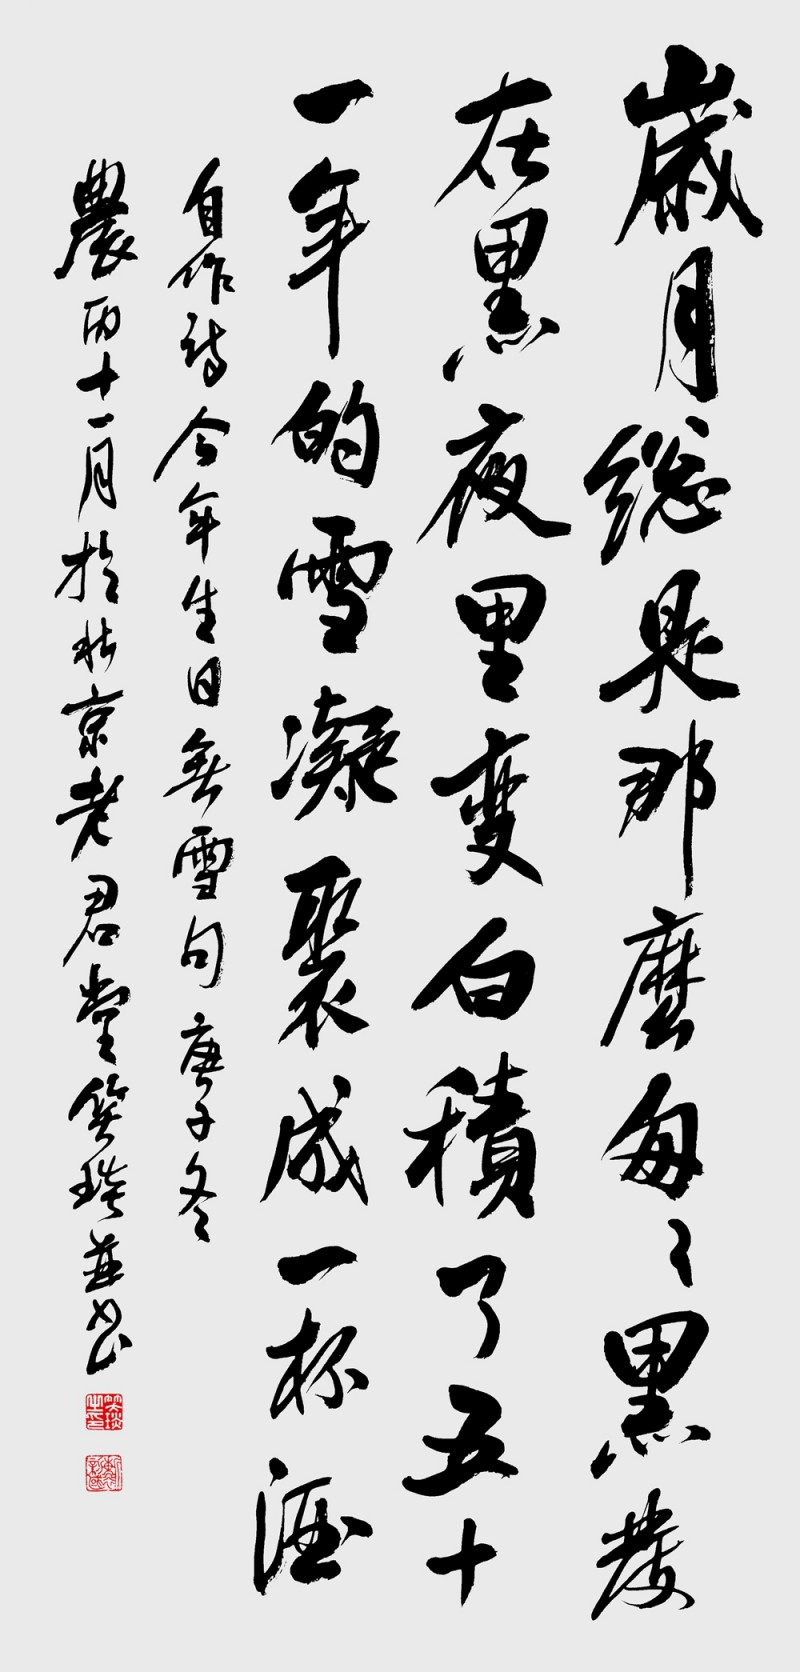 歲月總是那麼匆々黑髮
在黑夜里变白積了五十
一年的雪凝聚成一杯酒
自作詩今年生日無雪句庚子冬
農十一月於北京老君堂笑琰並書